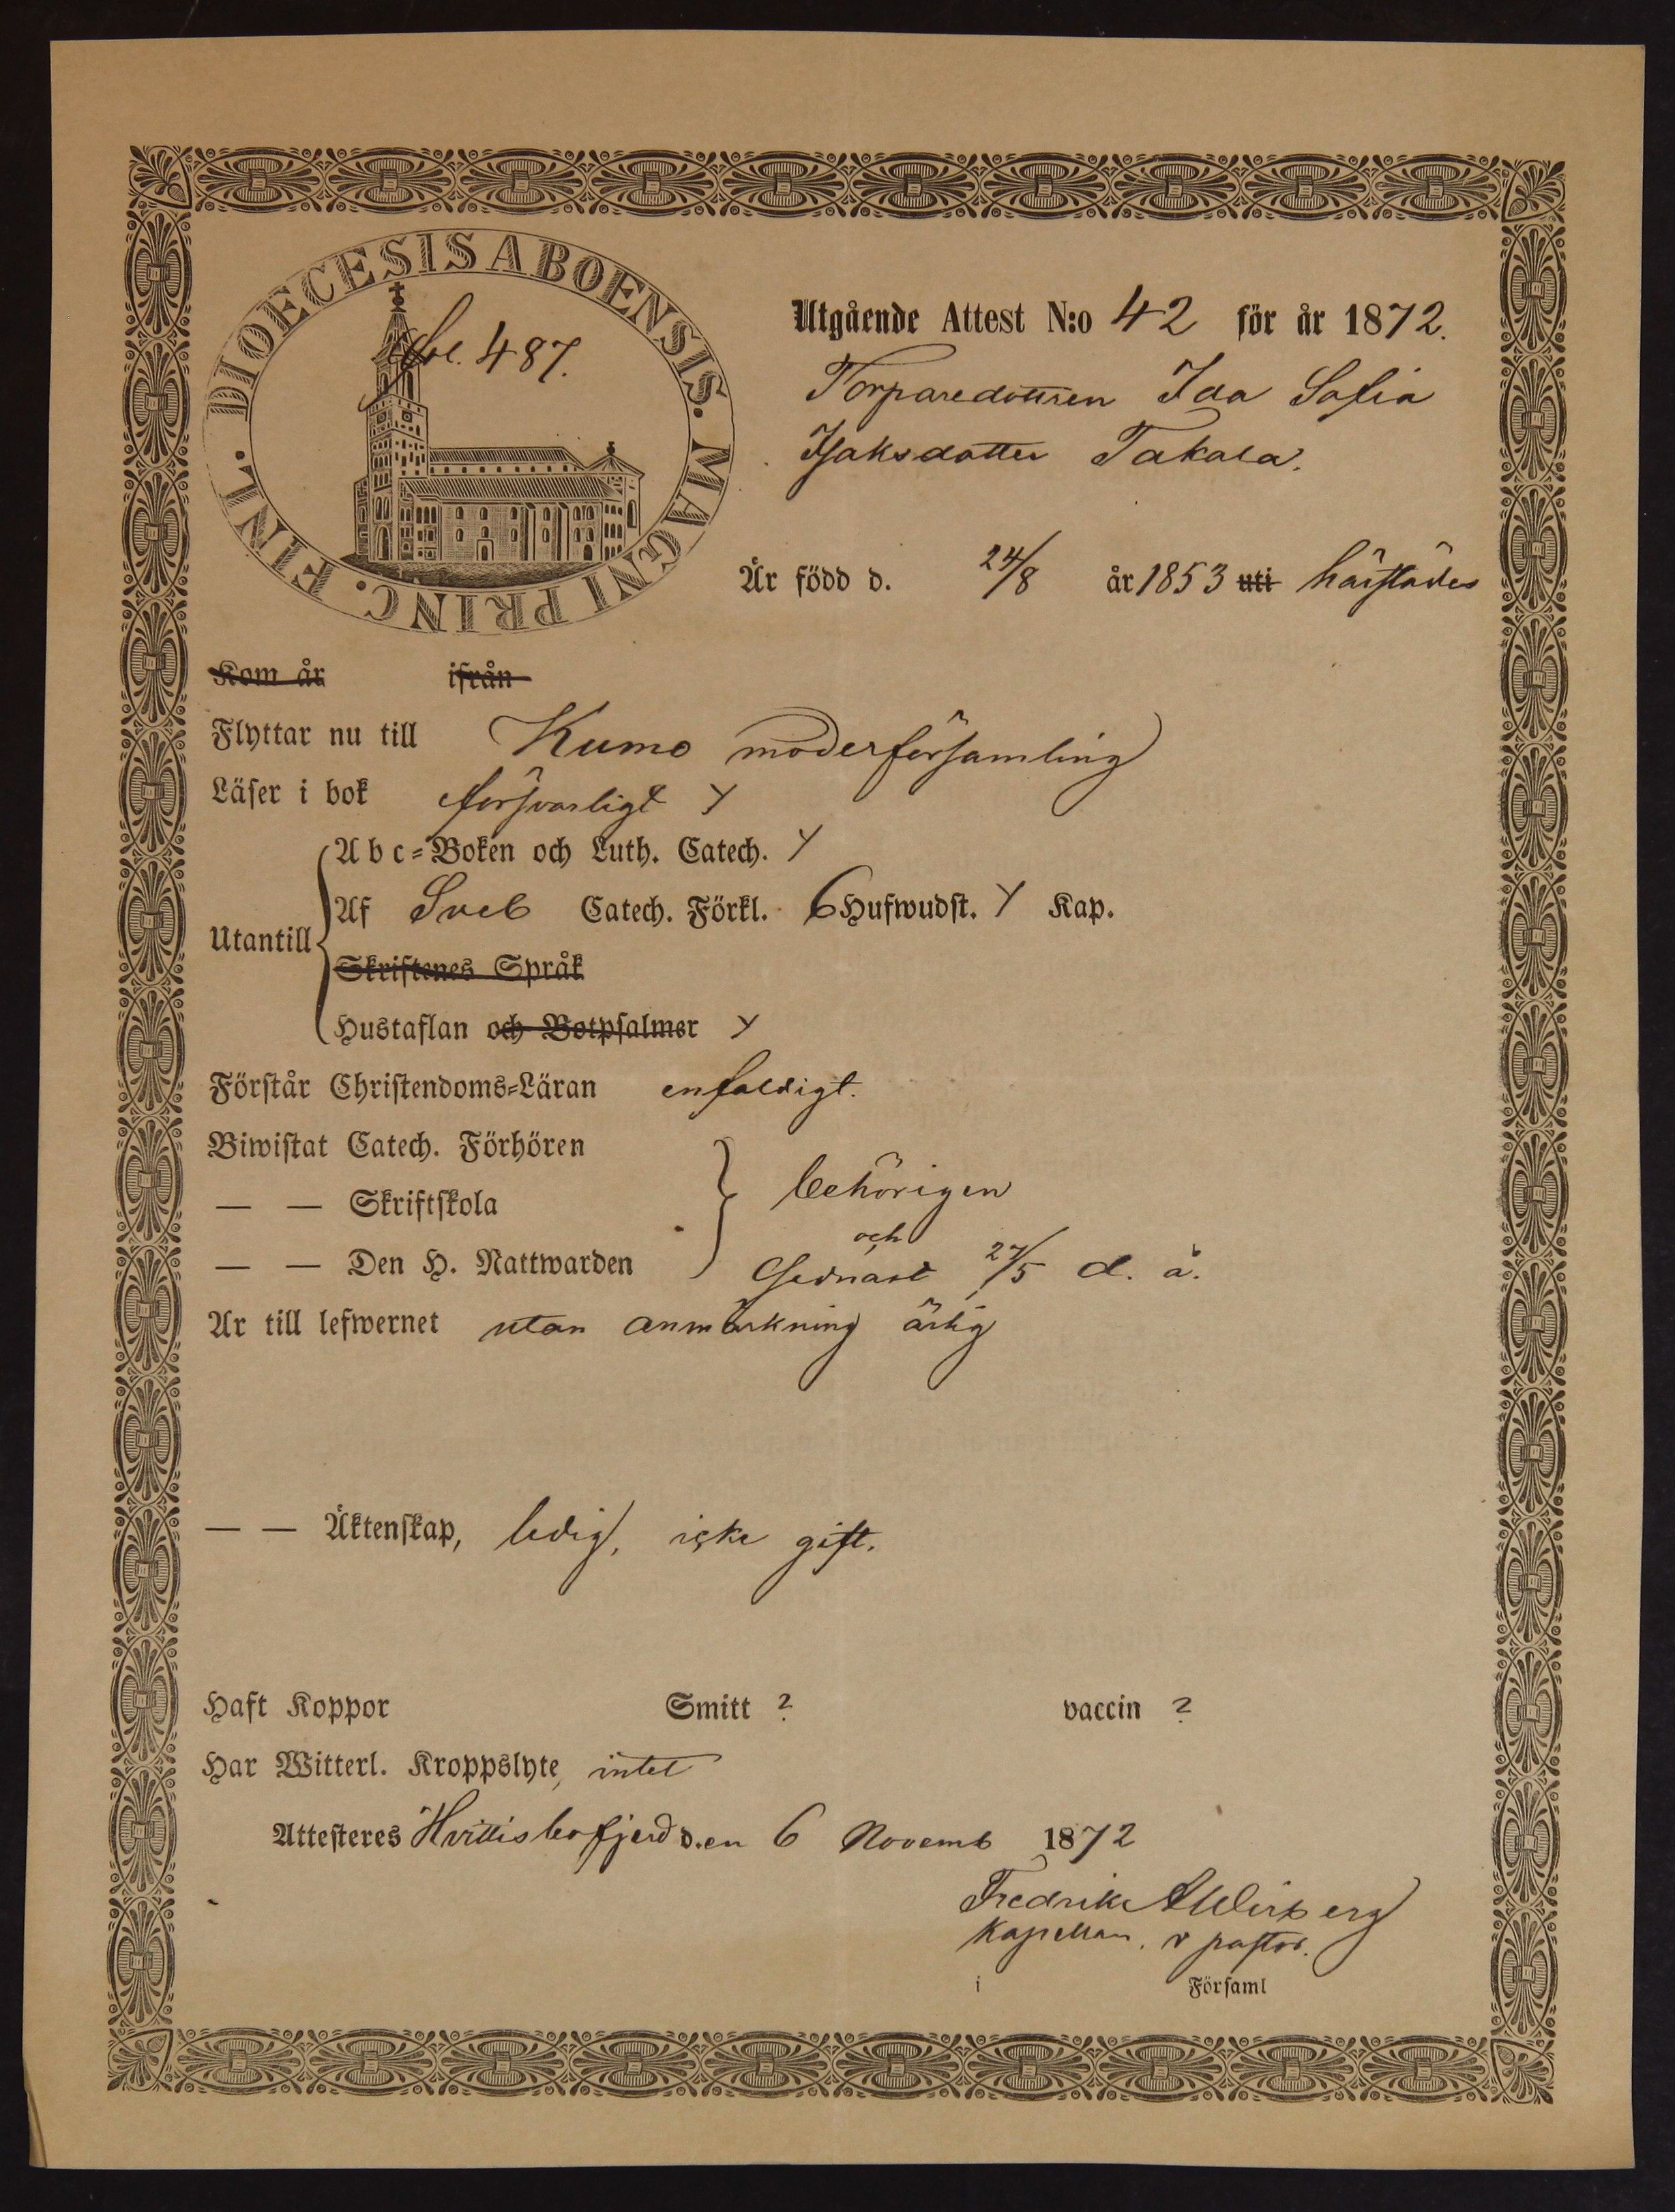 DIOECESIS ABOENSIS. MAGNI PRINC. FINL.
fol. 487.
Utgående Attest N:o 42 för år 1872.
Torparedottren Ida Sofia
Isaksdotter Takala.
Är född d. 24/8 år 1853 uti härstädes
Kom år ifrån
Flyttar nu till Kumo moderförsamling
Läser i bok försvarligt y
Utantill
Abc-Boken och Luth. Catech. y
Af Sveb Catech. Förkl. 6 Hufwudst. y Kap.
Skriftenes Språk
Hustaflan och Botpsalmer y
Förstår Christendoms-Läran enfaldigt.
Biwistat Catech. Förhören
— — Skriftskola behörigen
och
— — Den H. Nattwarden sednast 27/5 d. å.
Är till lefwernet utan anmärkning ärlig
— — Äktenskap, ledig, icke gift.
Haft Koppor Smitt ? vaccin ?
Har Witterl. Kroppslyte, intet
Attesteres Hvittisbofjerd d.en 6 Novemb 1872
Fredrik
Kapellan, v pastor.
i Församl